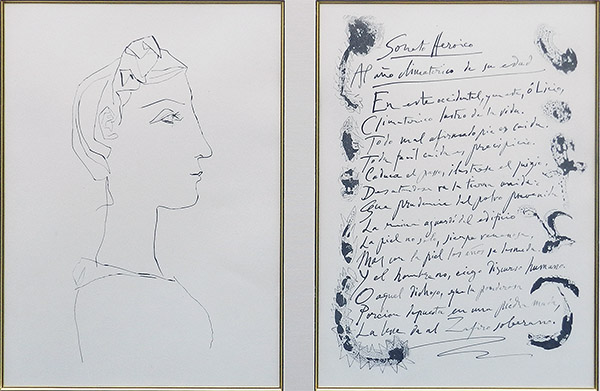 Soneto Heroico
Al año climaterico de su edad
En este occidental, en este, ó Licio,
Climaterico lustro de tu vida.
Todo mal afirmado pie es caida.
Toda facil caida es precipicio.
Caduca el passo, ilustrese el juizio.
Desatandose va la tierra unida:
Que prudencia del polvo prevenida
La ruina aguardó del edificio
La piel no solo, sierpe venenosa,
Mas con la piel los años se desnuda
Y el hombre no, ciego discurso humano
O aquel dichoso, que la ponderosa
Porcion depuesta en una piedra muda,
La leve da al Zafiro soberano.